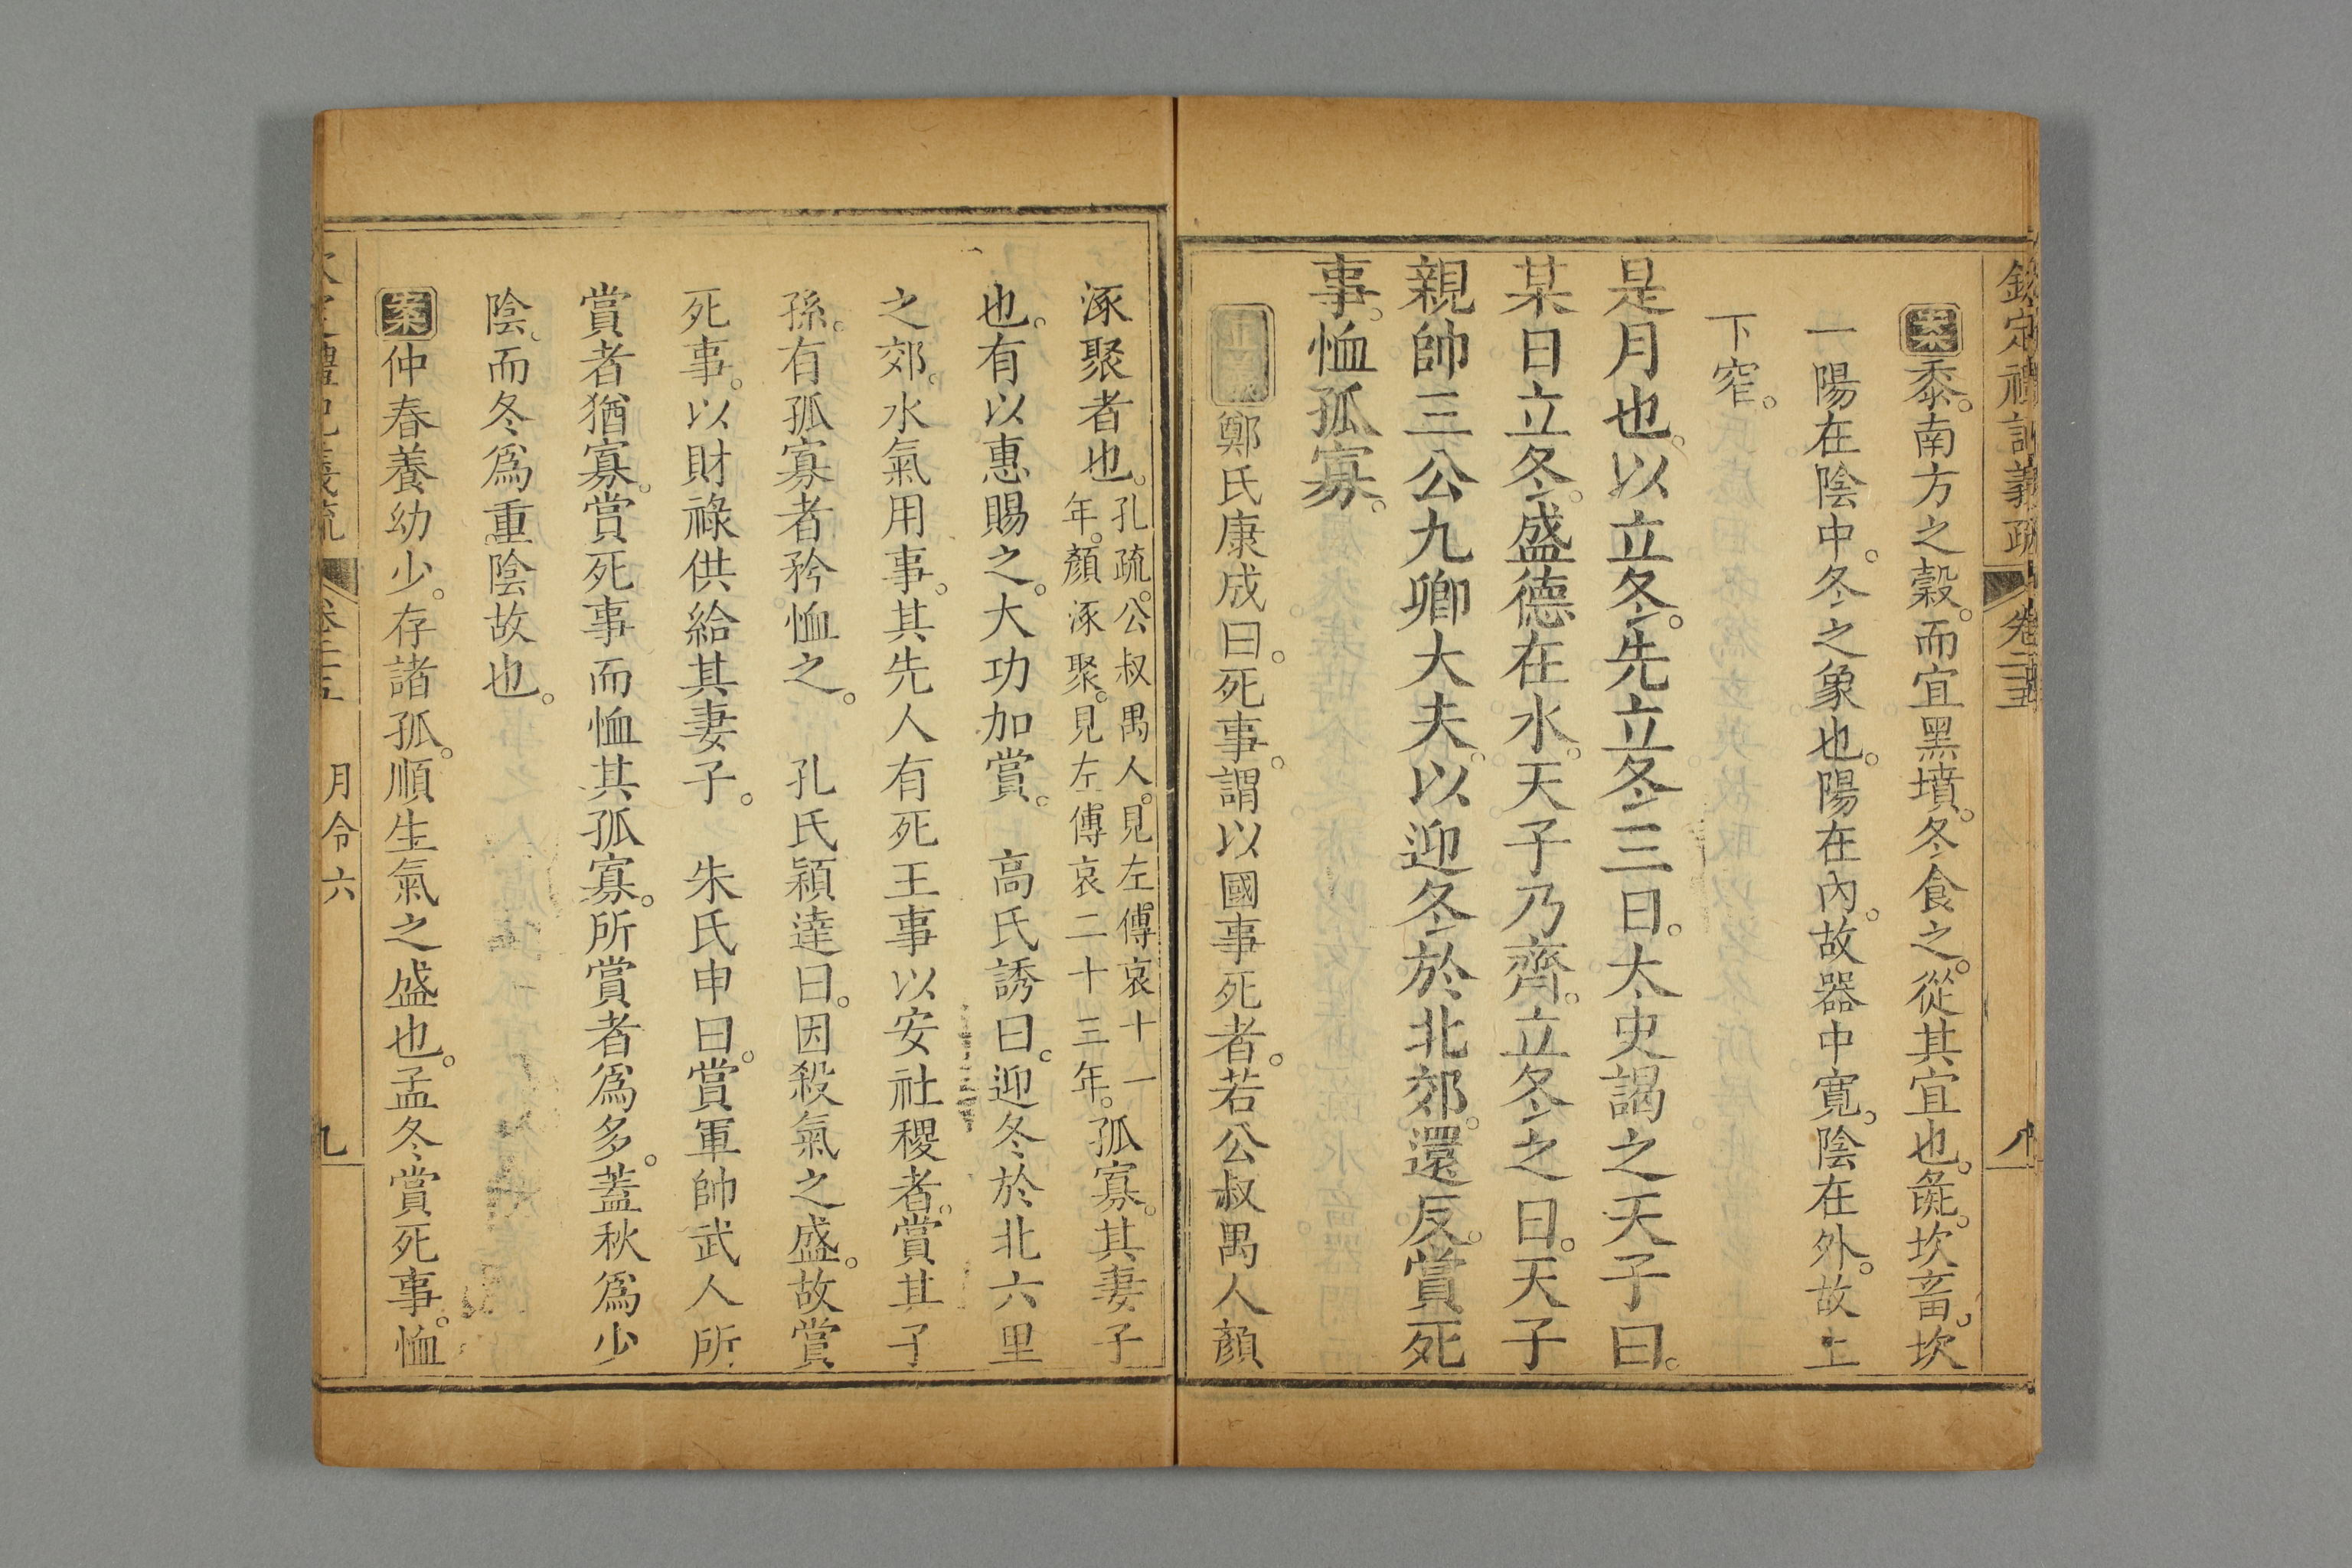 欽定禮記義疏 卷二十五 八
案黍。南方之穀。而宜黑墳。冬食之。從其宜也。彘。坎畜。坎
一陽在陰中。冬之象也。陽在內。故器中寬。陰在外。故上
下窄。
是月也。以立冬。先立冬三日。太史謁之天子曰。
某日立冬。盛德在水。天子乃齊。立冬之日。天子
親帥三公九卿大夫。以迎冬於北郊。還反。賞死
事。恤孤寡。
鄭氏康成曰。死事。謂以國事死者。若公叔禺人顏
涿聚者也。孔疏。公叔禺人。見左傳哀十一
年。顏涿聚。見左傳哀二十三年。孤寡。其妻子
也。有以惠賜之。大功加賞。 高氏誘曰。迎冬於北六里
之郊。水氣用事。其先人有死王事以安社稷者。賞其子
孫。有孤寡者矜恤之。 孔氏穎達曰。因殺氣之盛。故賞
死事。以財祿供給其妻子。 朱氏申曰。賞軍帥武人所
賞者猶寡。賞死事而恤其孤寡。所賞者爲多。蓋秋爲少
陰。而冬爲重陰故也。
案仲春養幼少。存諸孤。順生氣之盛也。孟冬賞死事。恤
禮記義疏 卷二十五 月令六 九